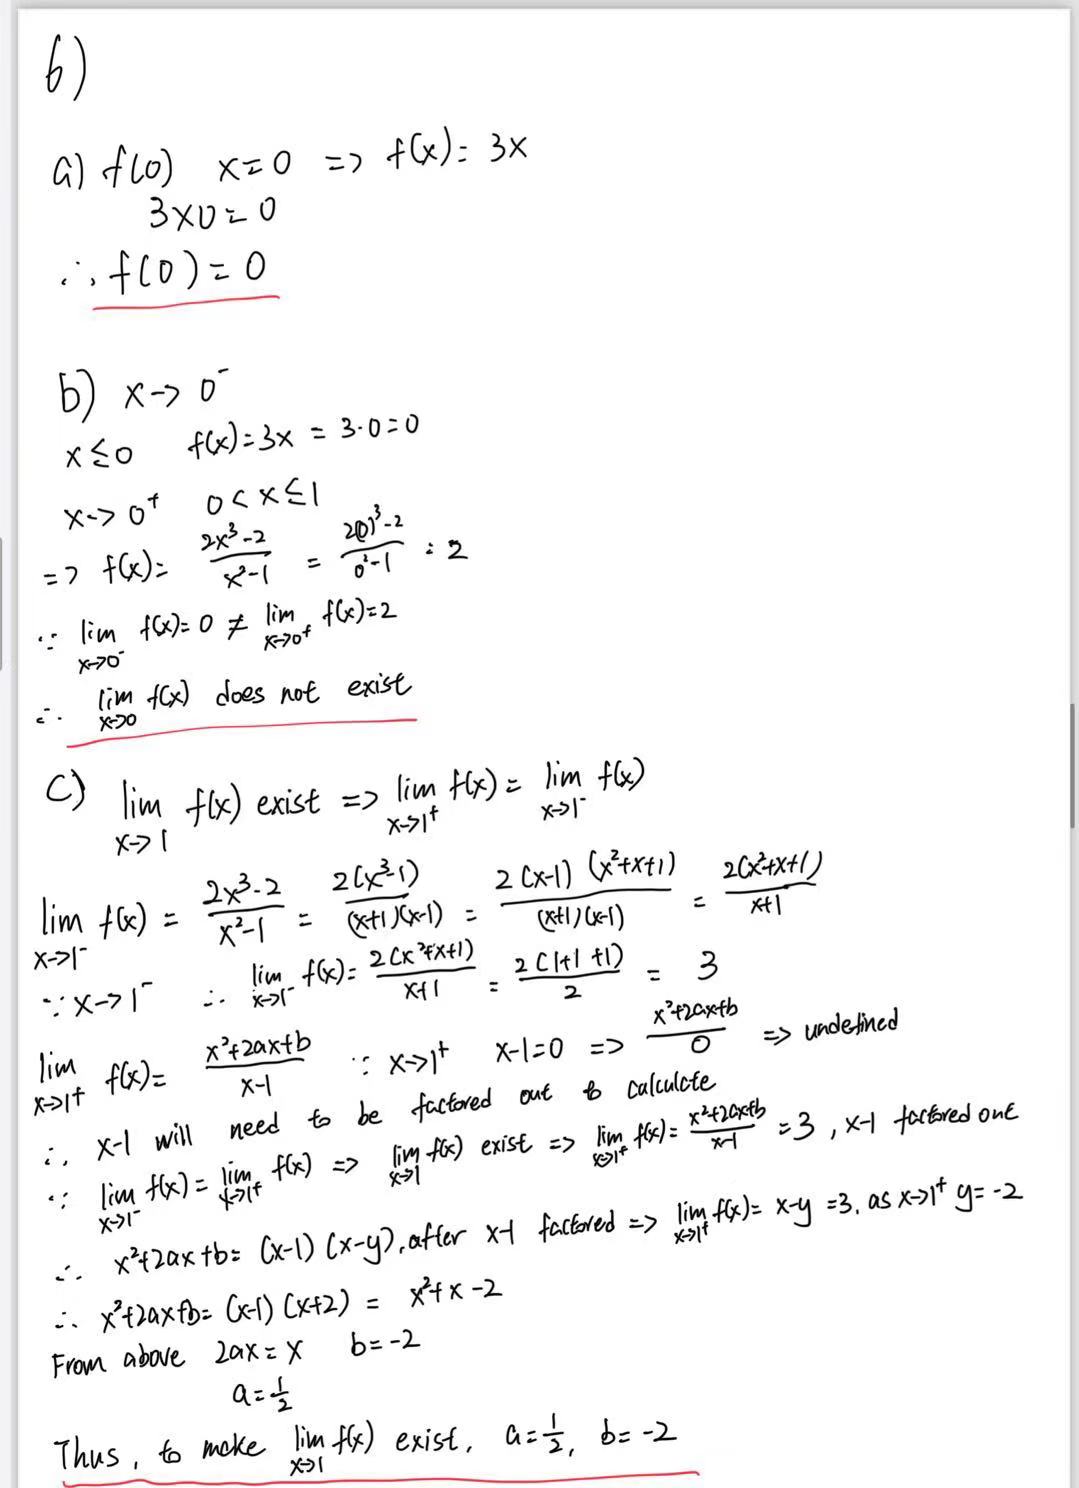 6)
a) f(0) x=0 => f(x)= 3x
3×0=0
∴ f(0)=0
b) x->0⁻
x≤0 f(x)=3x = 3·0=0
x->0⁺ 0<x≤1
=> f(x)= (2x³-2)/(x²-1) = (2(0)³-2)/(0²-1) = 2
∵ lim x->0⁻ f(x)=0 ≠ lim x->0⁺ f(x)=2
∴ lim x->0 f(x) does not exist
c) lim x->1 f(x) exist => lim x->1⁺ f(x) = lim x->1⁻ f(x)
lim x->1⁻ f(x) = (2x³-2)/(x²-1) = 2(x³-1)/((x+1)(x-1)) = 2(x-1)(x²+x+1)/((x+1)(x-1)) = 2(x²+x+1)/(x+1)
∵ x->1⁻ ∴ lim x->1⁻ f(x)= 2(x²+x+1)/(x+1) = 2(1+1+1)/2 = 3
lim x->1⁺ f(x)= (x²+2ax+b)/(x-1) ∵ x->1⁺ x-1=0 => (x²+2ax+b)/0 => undefined
∴ x-1 will need to be factored out to calculate
∵ lim x->1⁻ f(x) = lim x->1⁺ f(x) => lim x->1 f(x) exist => lim x->1⁺ f(x)= (x²+2ax+b)/(x-1) =3, x-1 factored out
∴ x²+2ax+b= (x-1)(x-y), after x-1 factored => lim x->1⁺ f(x)= x-y =3, as x->1⁺ y=-2
∴ x²+2ax+b= (x-1)(x+2) = x²+x-2
From above 2ax=x b=-2
a=1/2
Thus, to make lim x->1 f(x) exist, a=1/2, b=-2